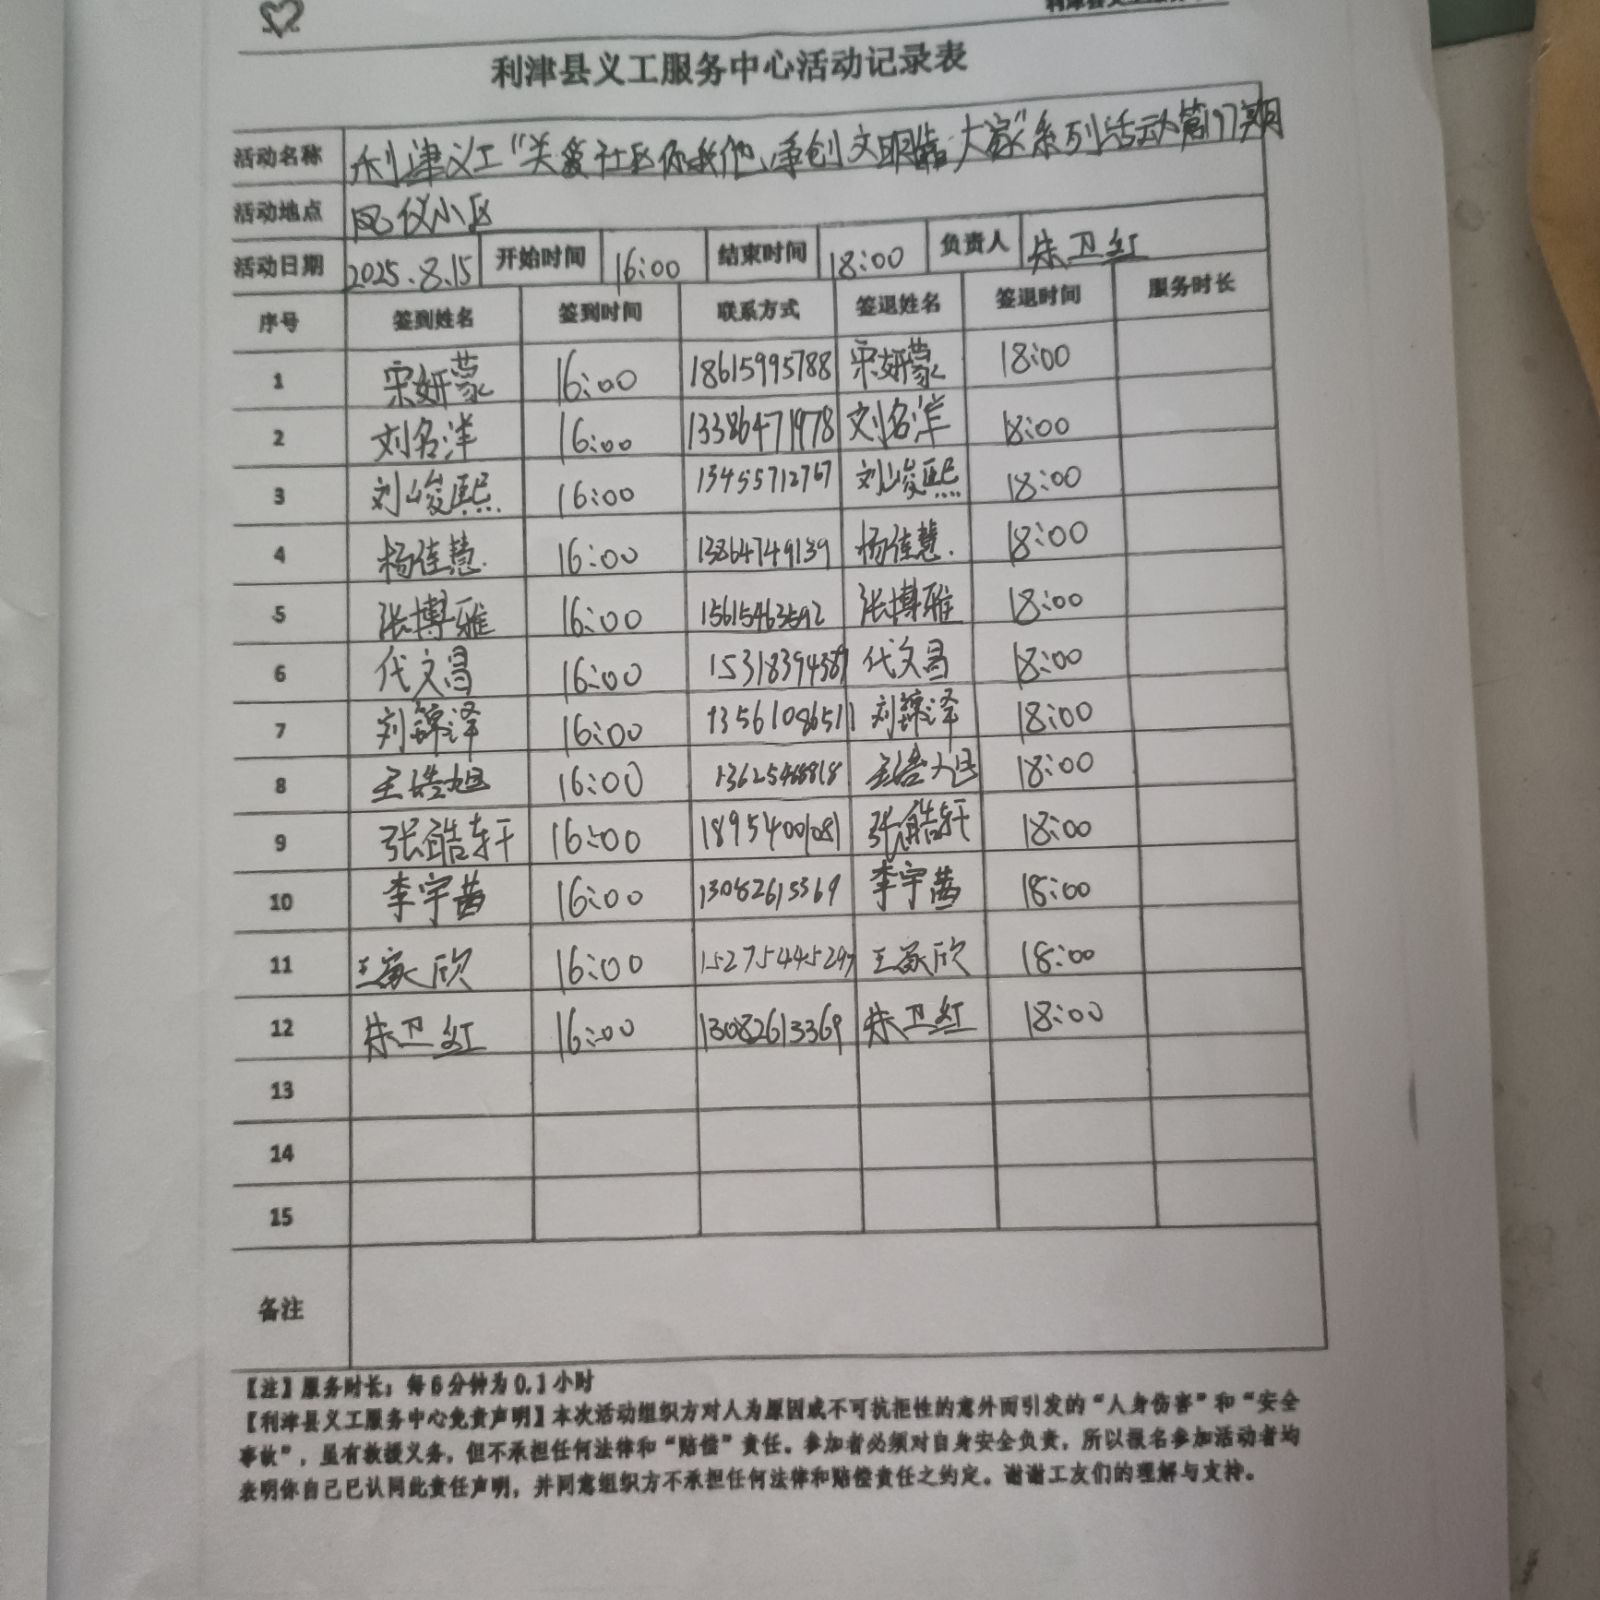 利津县义工服务中心活动记录表
活动名称 利津义工“关爱社区你我他,争创文明靠大家”系列活动第197期
活动地点 凤仪小区
活动日期 2025.8.15 开始时间 16:00 结束时间 18:00 负责人 朱卫红
序号 签到姓名 签到时间 联系方式 签退姓名 签退时间 服务时长
1 宋妍蒙 16:00 18615995788 宋妍蒙 18:00
2 刘名洋 16:00 13386471978 刘名洋 18:00
3 刘峻熙 16:00 13455712767 刘峻熙 18:00
4 杨佳慧 16:00 13864749139 杨佳慧 18:00
5 张博雅 16:00 15615463592 张博雅 18:00
6 代文昌 16:00 15318394389 代文昌 18:00
7 刘锦泽 16:00 13561086511 刘锦泽 18:00
8 王皓旭 16:00 王皓旭 18:00
9 张皓轩 16:00 18954001081 张皓轩 18:00
10 李宇茜 16:00 13082613369 李宇茜 18:00
11 王家欣 16:00 15275445297 王家欣 18:00
12 朱卫红 16:00 13082613369 朱卫红 18:00
13
14
15
备注
【注】服务时长:每6分钟为0.1小时
【利津县义工服务中心免责声明】本次活动组织方对人为原因或不可抗拒性的意外而引发的“人身伤害”和“安全
事故”,虽有救援义务,但不承担任何法律和“赔偿”责任。参加者必须对自身安全负责,所以报名参加活动者均
表明你自己已认同此责任声明,并同意组织方不承担任何法律和赔偿责任之约定。谢谢工友们的理解与支持。